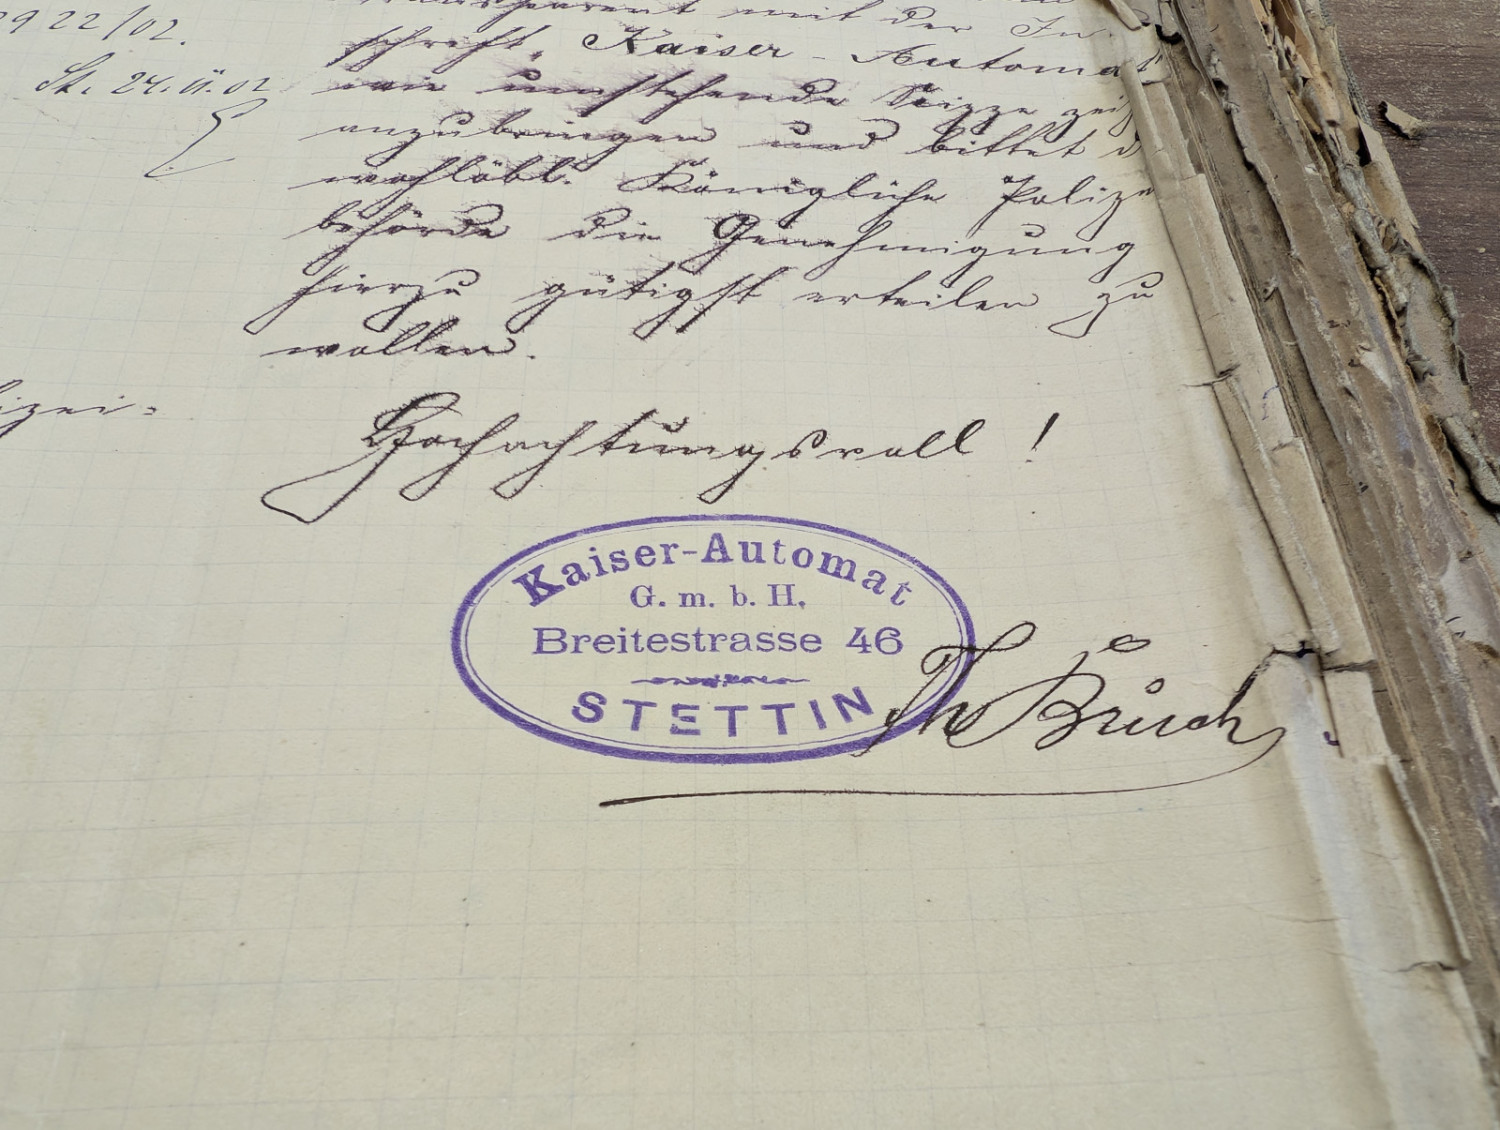 22/02.
St. 24.11.02
mit der In-
schrift „Kaiser-Automat
wie umstehende Skizze zeigt
anzubringen und bittet d
wohllöbl. Königliche Polizei
behörde die Genehmigung
hierzu gütigst erteilen zu
wollen.
lizei-
Hochachtungsvoll!
Kaiser-Automat
G. m. b. H.
Breitestrasse 46
STETTIN
Th Bruch